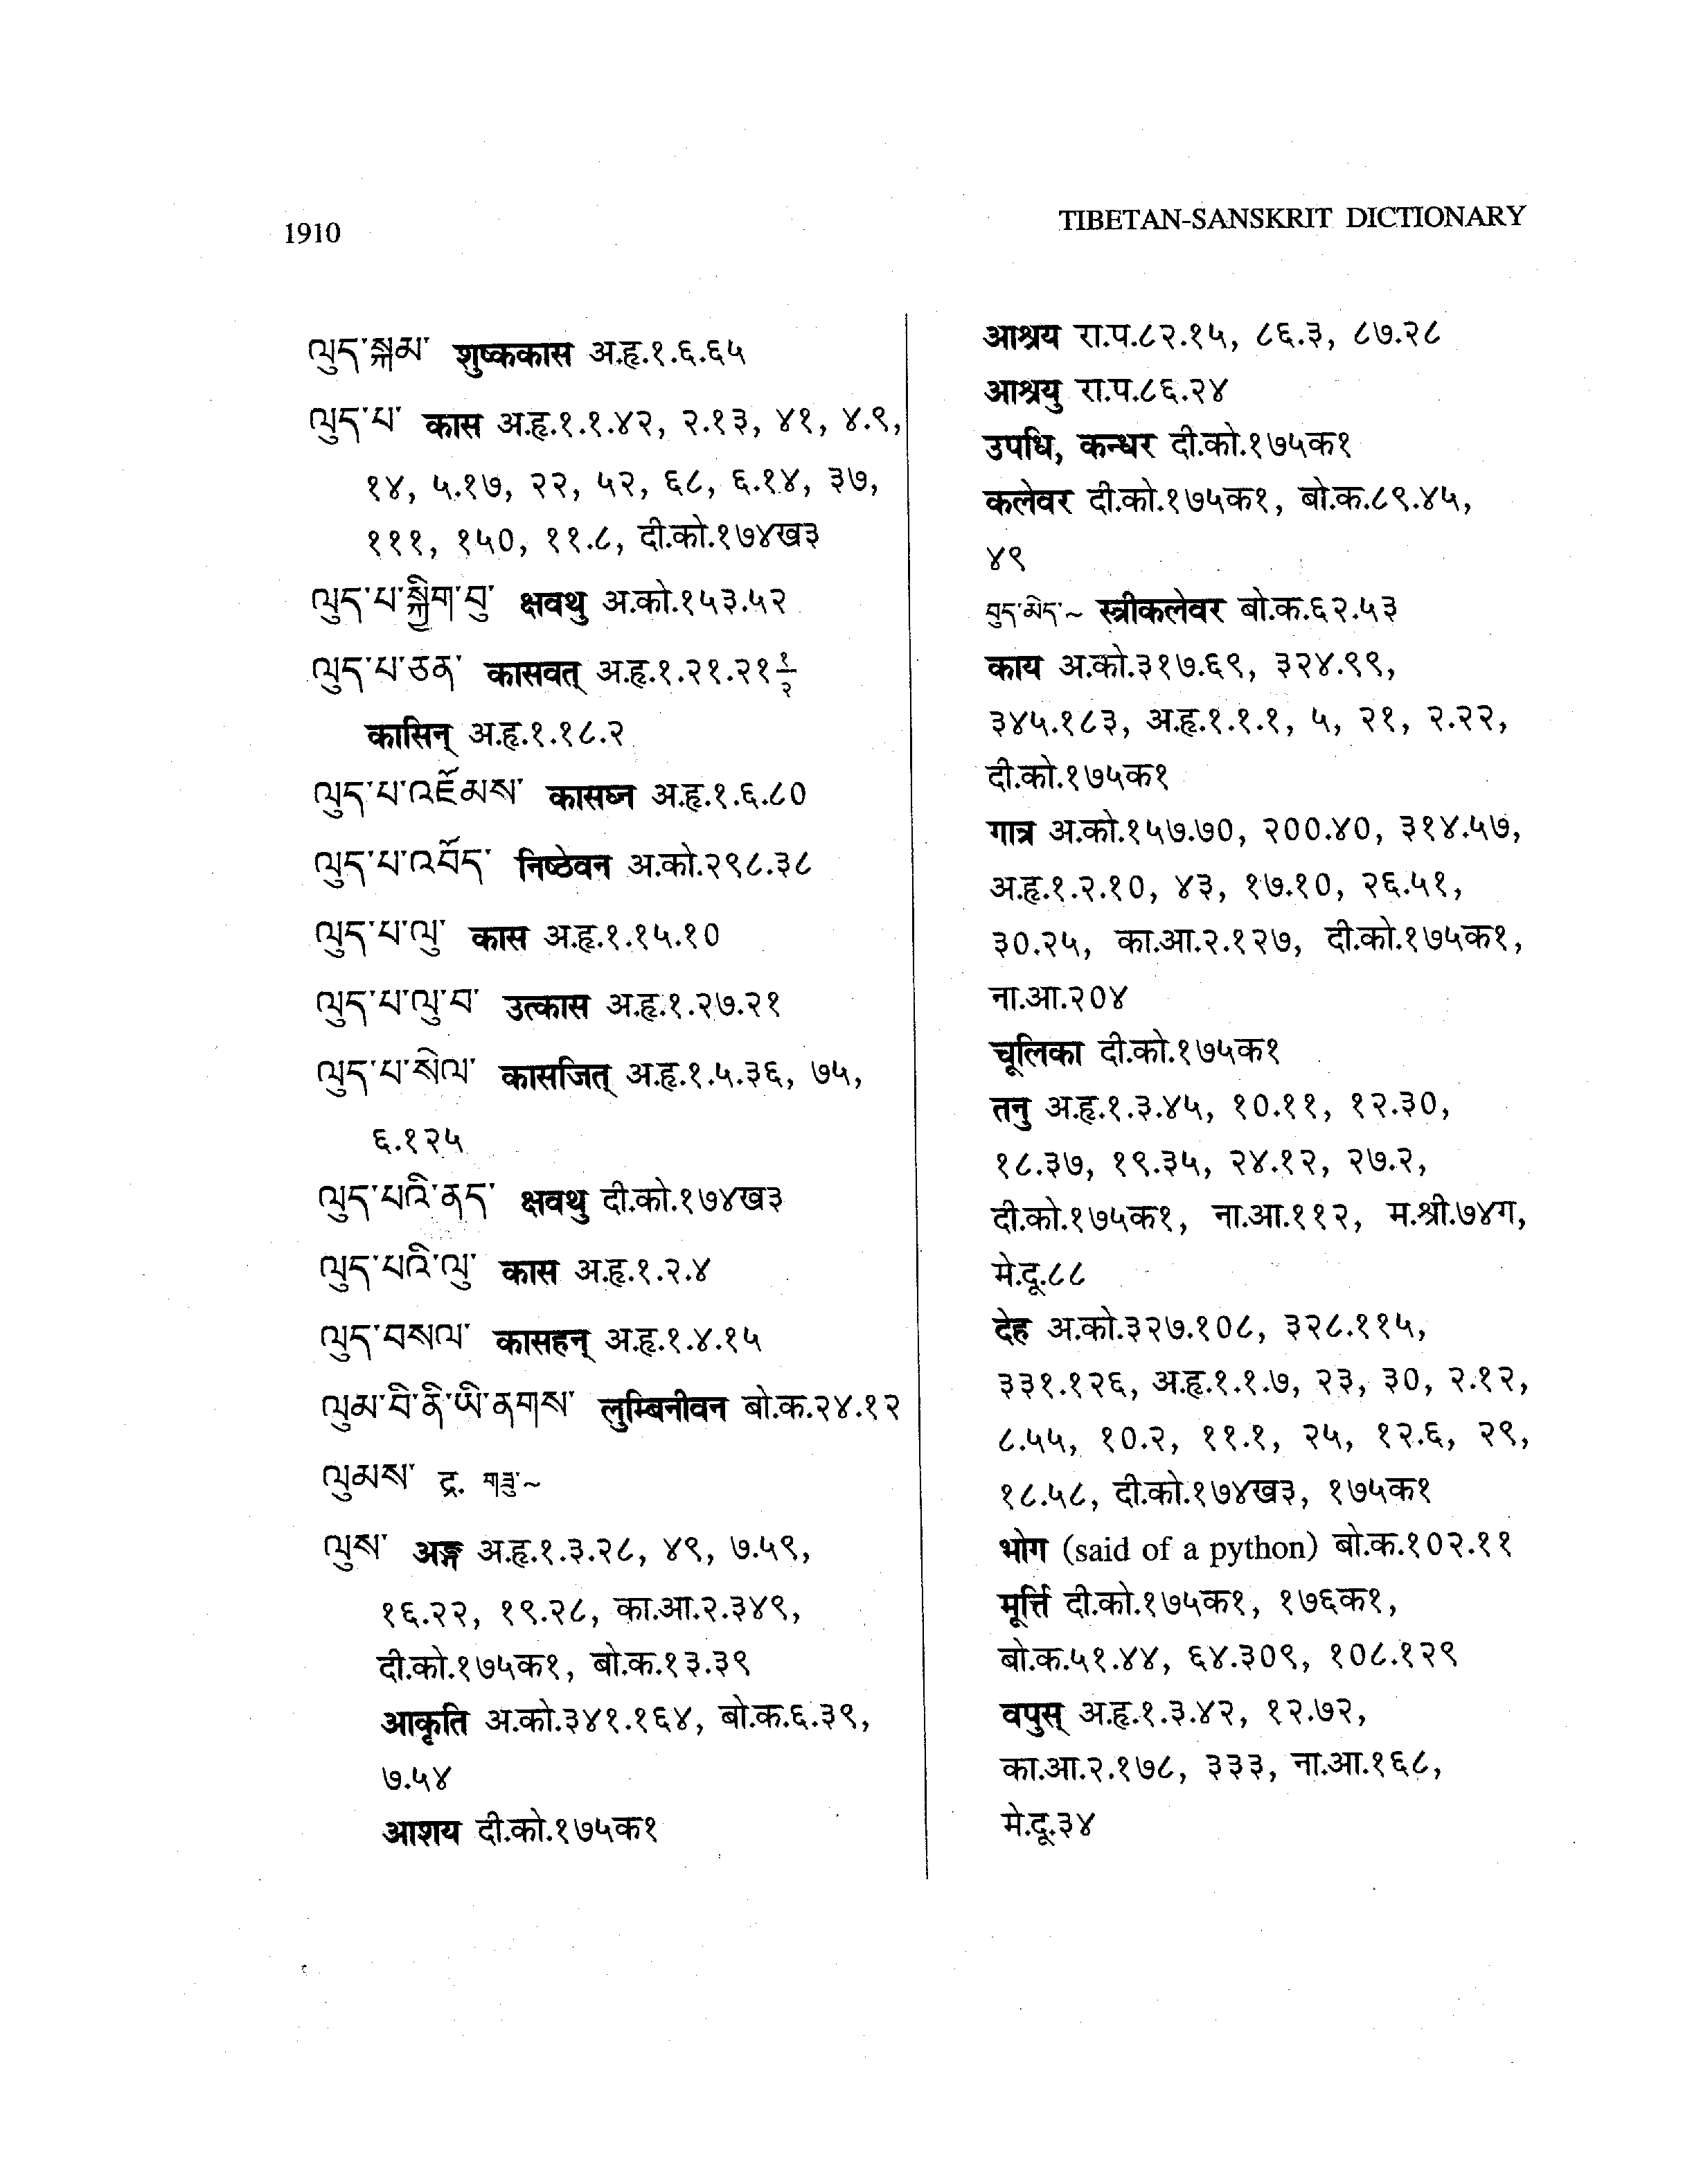 1910
TIBETAN-SANSKRIT DICTIONARY
ལུད་སྐམ་ शुष्ककास अ.हृ.१.६.६५
ལུད་པ་ कास अ.हृ.१.१.४२, २.१३, ४१, ४.९,
१४, ५.१७, २२, ५२, ६८, ६.१४, ३७,
१११, १५०, ११.८, दी.को.१७४ख३
ལུད་པ་སྐྱིག་བུ་ क्षवथु अ.को.१५३.५२
ལུད་པ་ཅན་ कासवत् अ.हृ.१.२१.२१ १/२
कासिन् अ.हृ.१.१८.२
ལུད་པ་འཇོམས་ कासघ्न अ.हृ.१.६.८०
ལུད་པ་འབོད་ निष्ठेवन अ.को.२९८.३८
ལུད་པ་ལུ་ कास अ.हृ.१.१५.१०
ལུད་པ་ལུ་བ་ उत्कास अ.हृ.१.२७.२१
ལུད་པ་སེལ་ कासजित् अ.हृ.१.५.३६, ७५,
६.१२५
ལུད་པའི་ནད་ क्षवथु दी.को.१७४ख३
ལུད་པའི་ལུ་ कास अ.हृ.१.२.४
ལུད་བསལ་ कासहन् अ.हृ.१.४.१५
ལུམ་བི་ནི་ཡི་ནགས་ लुम्बिनीवन बो.क.२४.१२
ལུམས་ द्र. གཟུ་~
ལུས་ अङ्ग अ.हृ.१.३.२८, ४९, ७.५९,
१६.२२, १९.२८, का.आ.२.३४९,
दी.को.१७५क१, बो.क.१३.३९
आकृति अ.को.३४१.१६४, बो.क.६.३९,
७.५४
आशय दी.को.१७५क१
आश्रय रा.प.८२.१५, ८६.३, ८७.२८
आश्रयु रा.प.८६.२४
उपधि, कन्धर दी.को.१७५क१
कलेवर दी.को.१७५क१, बो.क.८९.४५,
४९
བུད་མེད་~ स्त्रीकलेवर बो.क.६२.५३
काय अ.को.३१७.६९, ३२४.९९,
३४५.१८३, अ.हृ.१.१.१, ५, २१, २.२२,
दी.को.१७५क१
गात्र अ.को.१५७.७०, २००.४०, ३१४.५७,
अ.हृ.१.२.१०, ४३, १७.१०, २६.५१,
३०.२५, का.आ.२.१२७, दी.को.१७५क१,
ना.आ.२०४
चूलिका दी.को.१७५क१
तनु अ.हृ.१.३.४५, १०.११, १२.३०,
१८.३७, १९.३५, २४.१२, २७.२,
दी.को.१७५क१, ना.आ.११२, म.श्री.७४ग,
मे.दू.८८
देह अ.को.३२७.१०८, ३२८.११५,
३३१.१२६, अ.हृ.१.१.७, २३, ३०, २.१२,
८.५५, १०.२, ११.१, २५, १२.६, २९,
१८.५८, दी.को.१७४ख३, १७५क१
भोग (said of a python) बो.क.१०२.११
मूर्त्ति दी.को.१७५क१, १७६क१,
बो.क.५१.४४, ६४.३०९, १०८.१२९
वपुस् अ.हृ.१.३.४२, १२.७२,
का.आ.२.१७८, ३३३, ना.आ.१६८,
मे.दू.३४